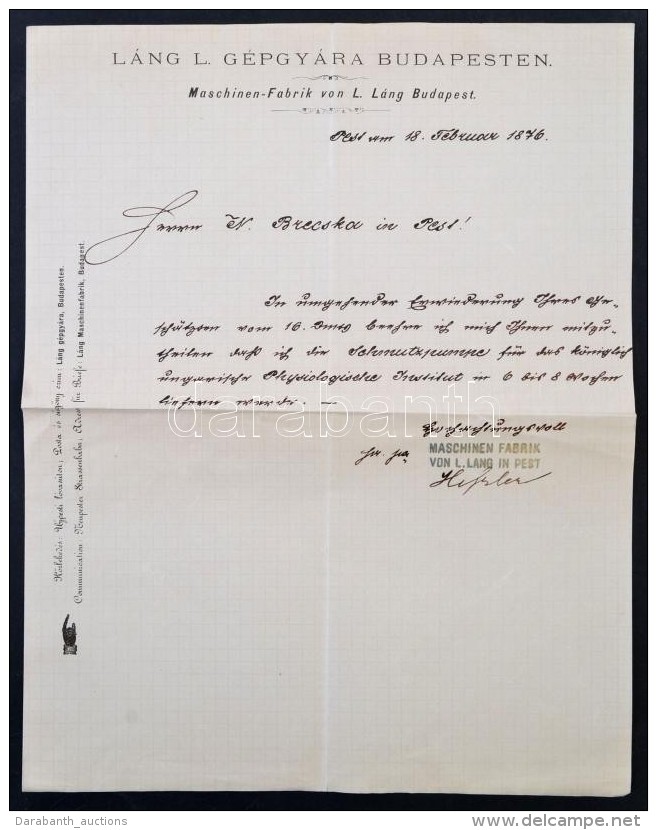 LÁNG L. GÉPGYÁRA BUDAPESTEN.
Maschinen-Fabrik von L. Láng Budapest.
Pest am 18. Februar 1876.
Herrn N. Brecska in Pest!
In umgehender Erwiederung Ihres Ge-
schätzten vom 16. beehre ich mich Ihnen mitzu-
theilen daß ich die Schmutzpumpe für das königlich
ungarische Physiologische Institut in 6 bis 8 Wochen
liefern werde. —
Hochachtungsvoll
MASCHINEN FABRIK
VON L. LANG IN PEST
Közlekedés: Ujpesti lovasúton; Posta és sürgöny czim: Láng gépgyára, Budapesten.
Communication: Neupester Strassenbahn; Adress für Briefe: Láng Maschinenfabrik, Budapest.
darabanth
Darabanth_auctions
delcampe.net